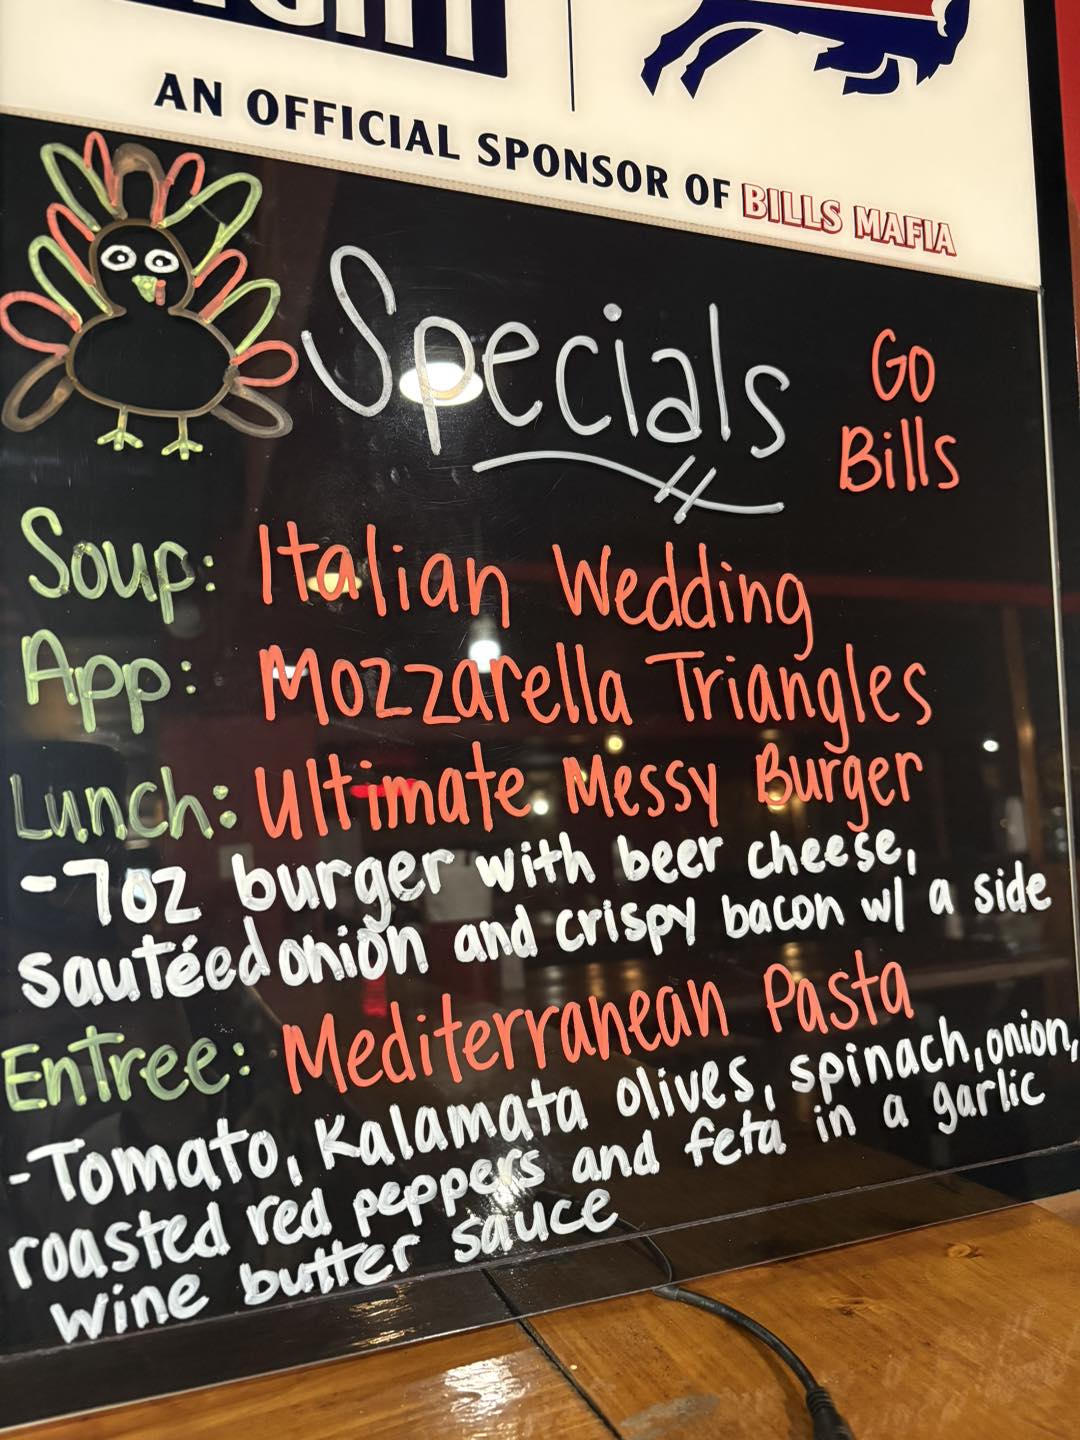 AN OFFICIAL SPONSOR OF BILLS MAFIA
Specials
Go
Bills
Soup: Italian Wedding
App: Mozzarella Triangles
Lunch: Ultimate Messy Burger
-7oz burger with beer cheese,
sautéed onion and crispy bacon w/ a side
Entree: Mediterranean Pasta
-Tomato, Kalamata olives, spinach, onion,
roasted red peppers and feta in a garlic
wine butter sauce